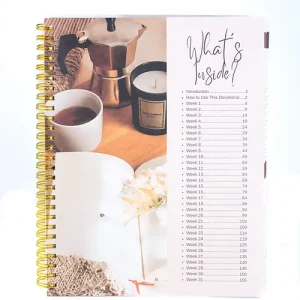 What's
Inside?
Introduction 1
How to Use This Devotional 2
Week 1 4
Week 2 9
Week 3 14
Week 4 19
Week 5 24
Week 6 29
Week 7 34
Week 8 39
Week 9 44
Week 10 49
Week 11 54
Week 12 59
Week 13 64
Week 14 69
Week 15 74
Week 16 79
Week 17
Week 18
Week 19
Week 20
Week 21
Week 22
Week 23
Week 24
Week 25
Week 26
Week 27
Week 28
Week 29
Week 30
Week 31 155